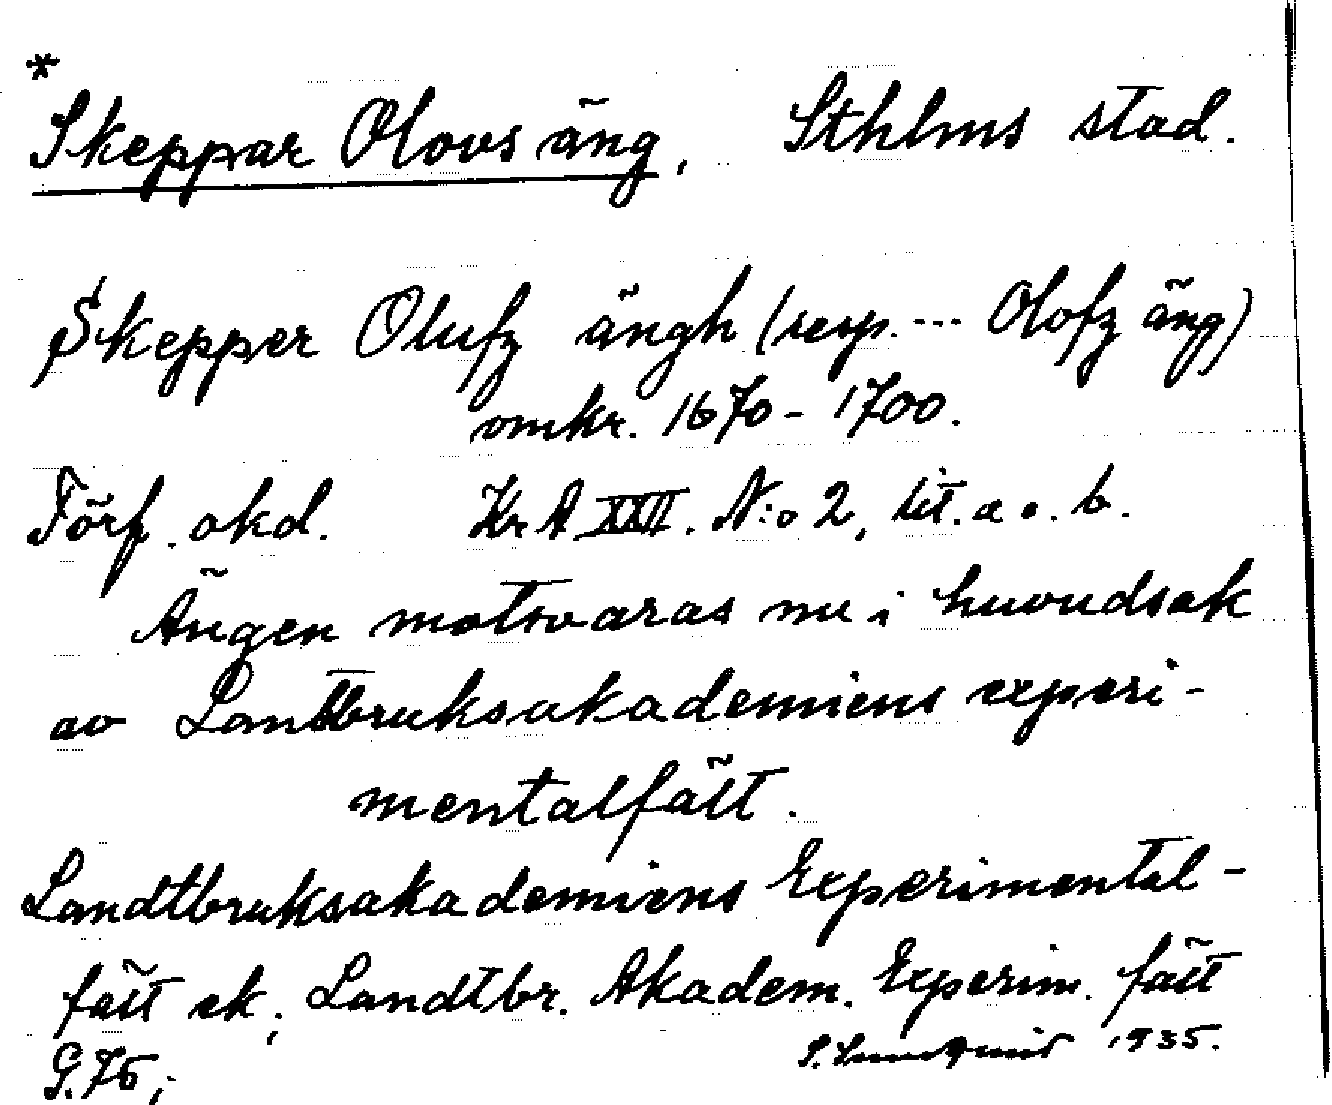 *
Skeppar Olovs äng, Sthlms stad.
Skepper Olufz ängh (resp. --- Olofz äng)
omkr. 1670 - 1700.
Förf. okd. KrA XXII. N:o 2, lit. a o. b.
Ängen motsvaras nu i huvudsak
av Lantbruksakademiens experi-
mentalfält.
Landtbruksakademiens Experimental-
fält ek; Landtbr. Akadem. Experim. fält
G. 76;
S. Lundqvist 1935.